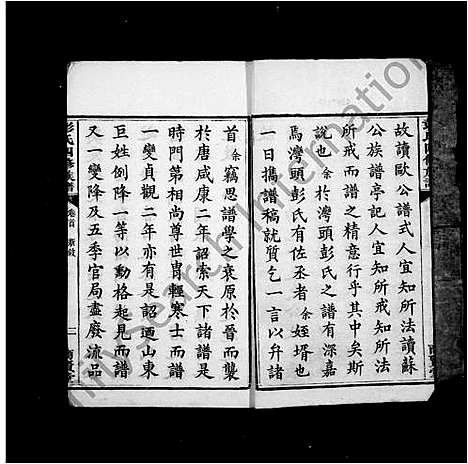 故讀歐公譜式人宜知所法讀蘇
公族譜亭記人宜知所戒知所法
所戒而譜之精意行乎其中矣斯
說也余於灣頭彭氏之譜有深嘉
焉灣頭彭氏有佐丞者余姪壻也
一日攜譜稿就質乞一言以弁諸
首余竊思譜學之衰原於晉而襲
於唐咸康二年詔索天下諸譜是
時門第相尚尊世胄輕寒士而譜
一變貞觀二年亦有是詔迺山東
巨姓例降一等以動格起見而譜
又一變降及五季官局盡廢流品
彭氏四修族譜
卷首
二